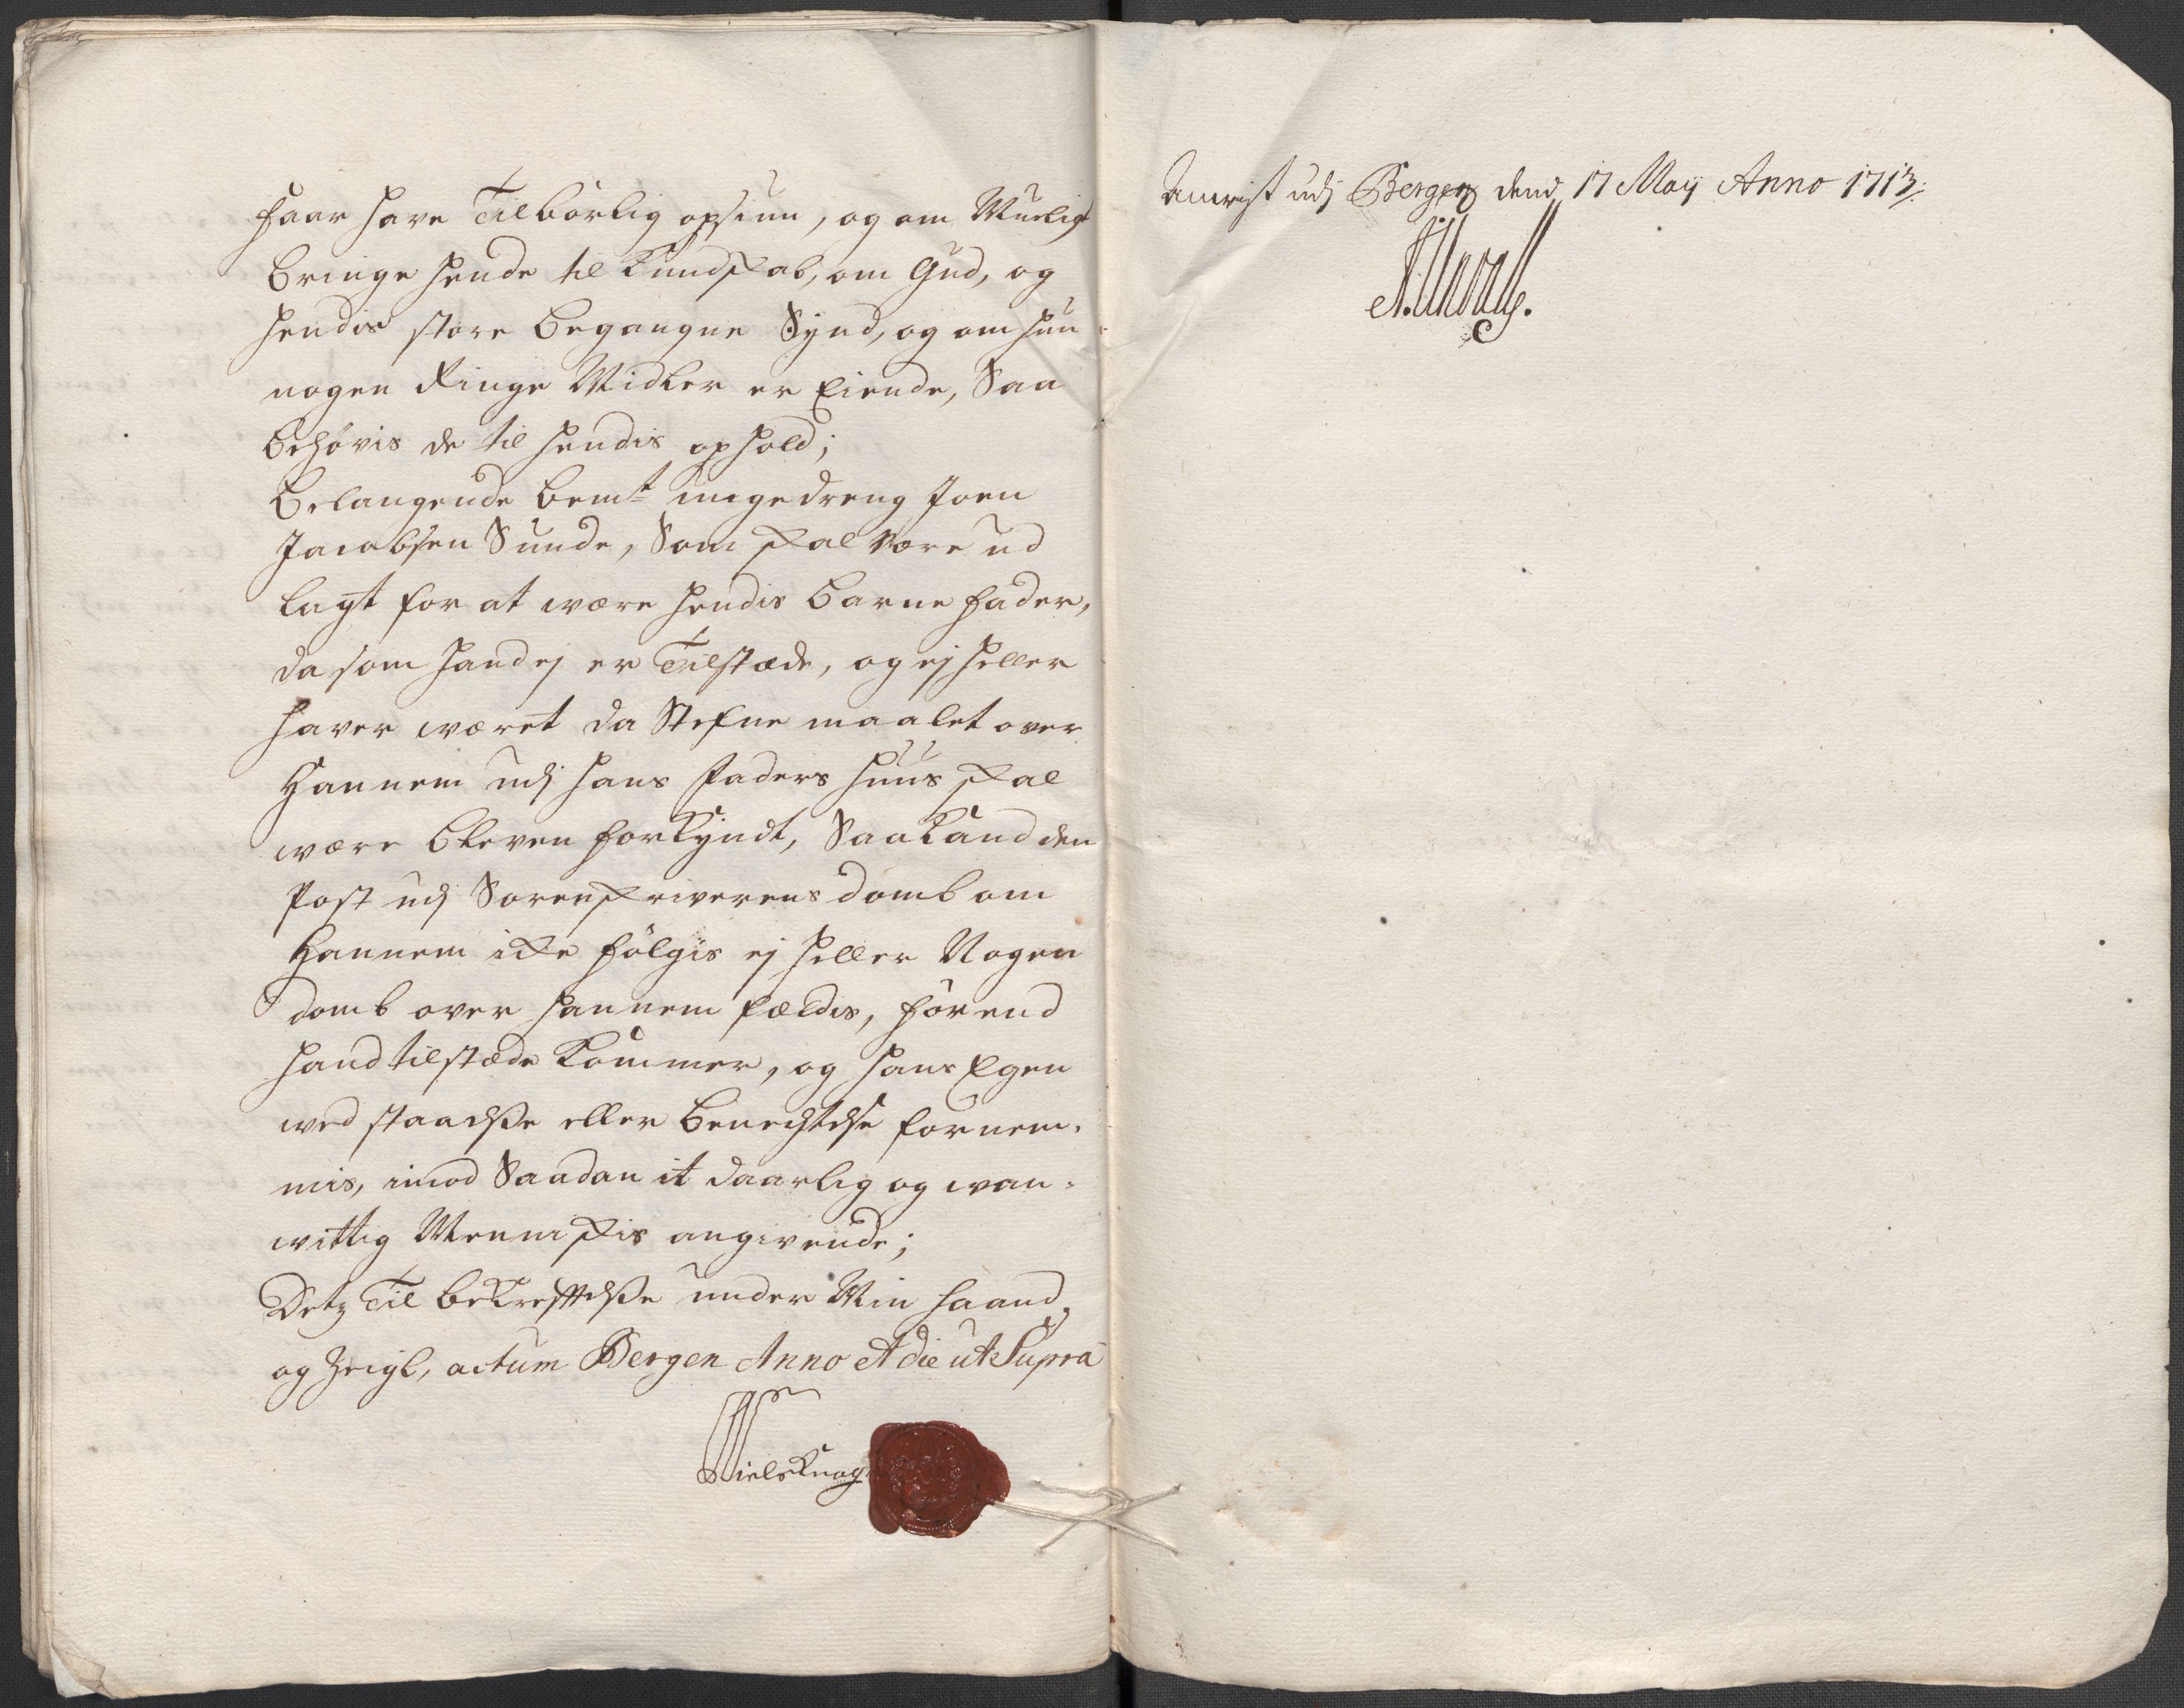 faar have Tilbörlig opsiun, og om Mueligt
bringe hende til Kundskab, om Gud, og
hendis store begangne Synd, og om hun
nogen Ringe Midler er Eiende, Saa
behövis de til hendis ophold;
belangende bemt ungedreng Joen
Jacobsen Sunde, Som skal være ud
lagt for at være hendis barne fader,
da som hand ej er Tilstæde, og ej heller
haver været da Stefne maalet over
Hannem udj hans Faders huus skal
være bleven forkyndt, Saa Kand den
Post udj Sorenskriverens domb om
Hannem icke fölgis ej heller Nogen
domb over hannem fældis, för end
hand tilstæde Kommer, og hans Egen
ved staaelße eller benechtelse fornem-
mis, imod Saadan it daarlig og van-
vittig Menniskis angivende;
Dets Til bekrefftelße under Min haand
og Zeigl, actum Bergen Anno et die ut Supra
Niels Knag
udj Bergen dend 17 Maÿ Anno 1713: